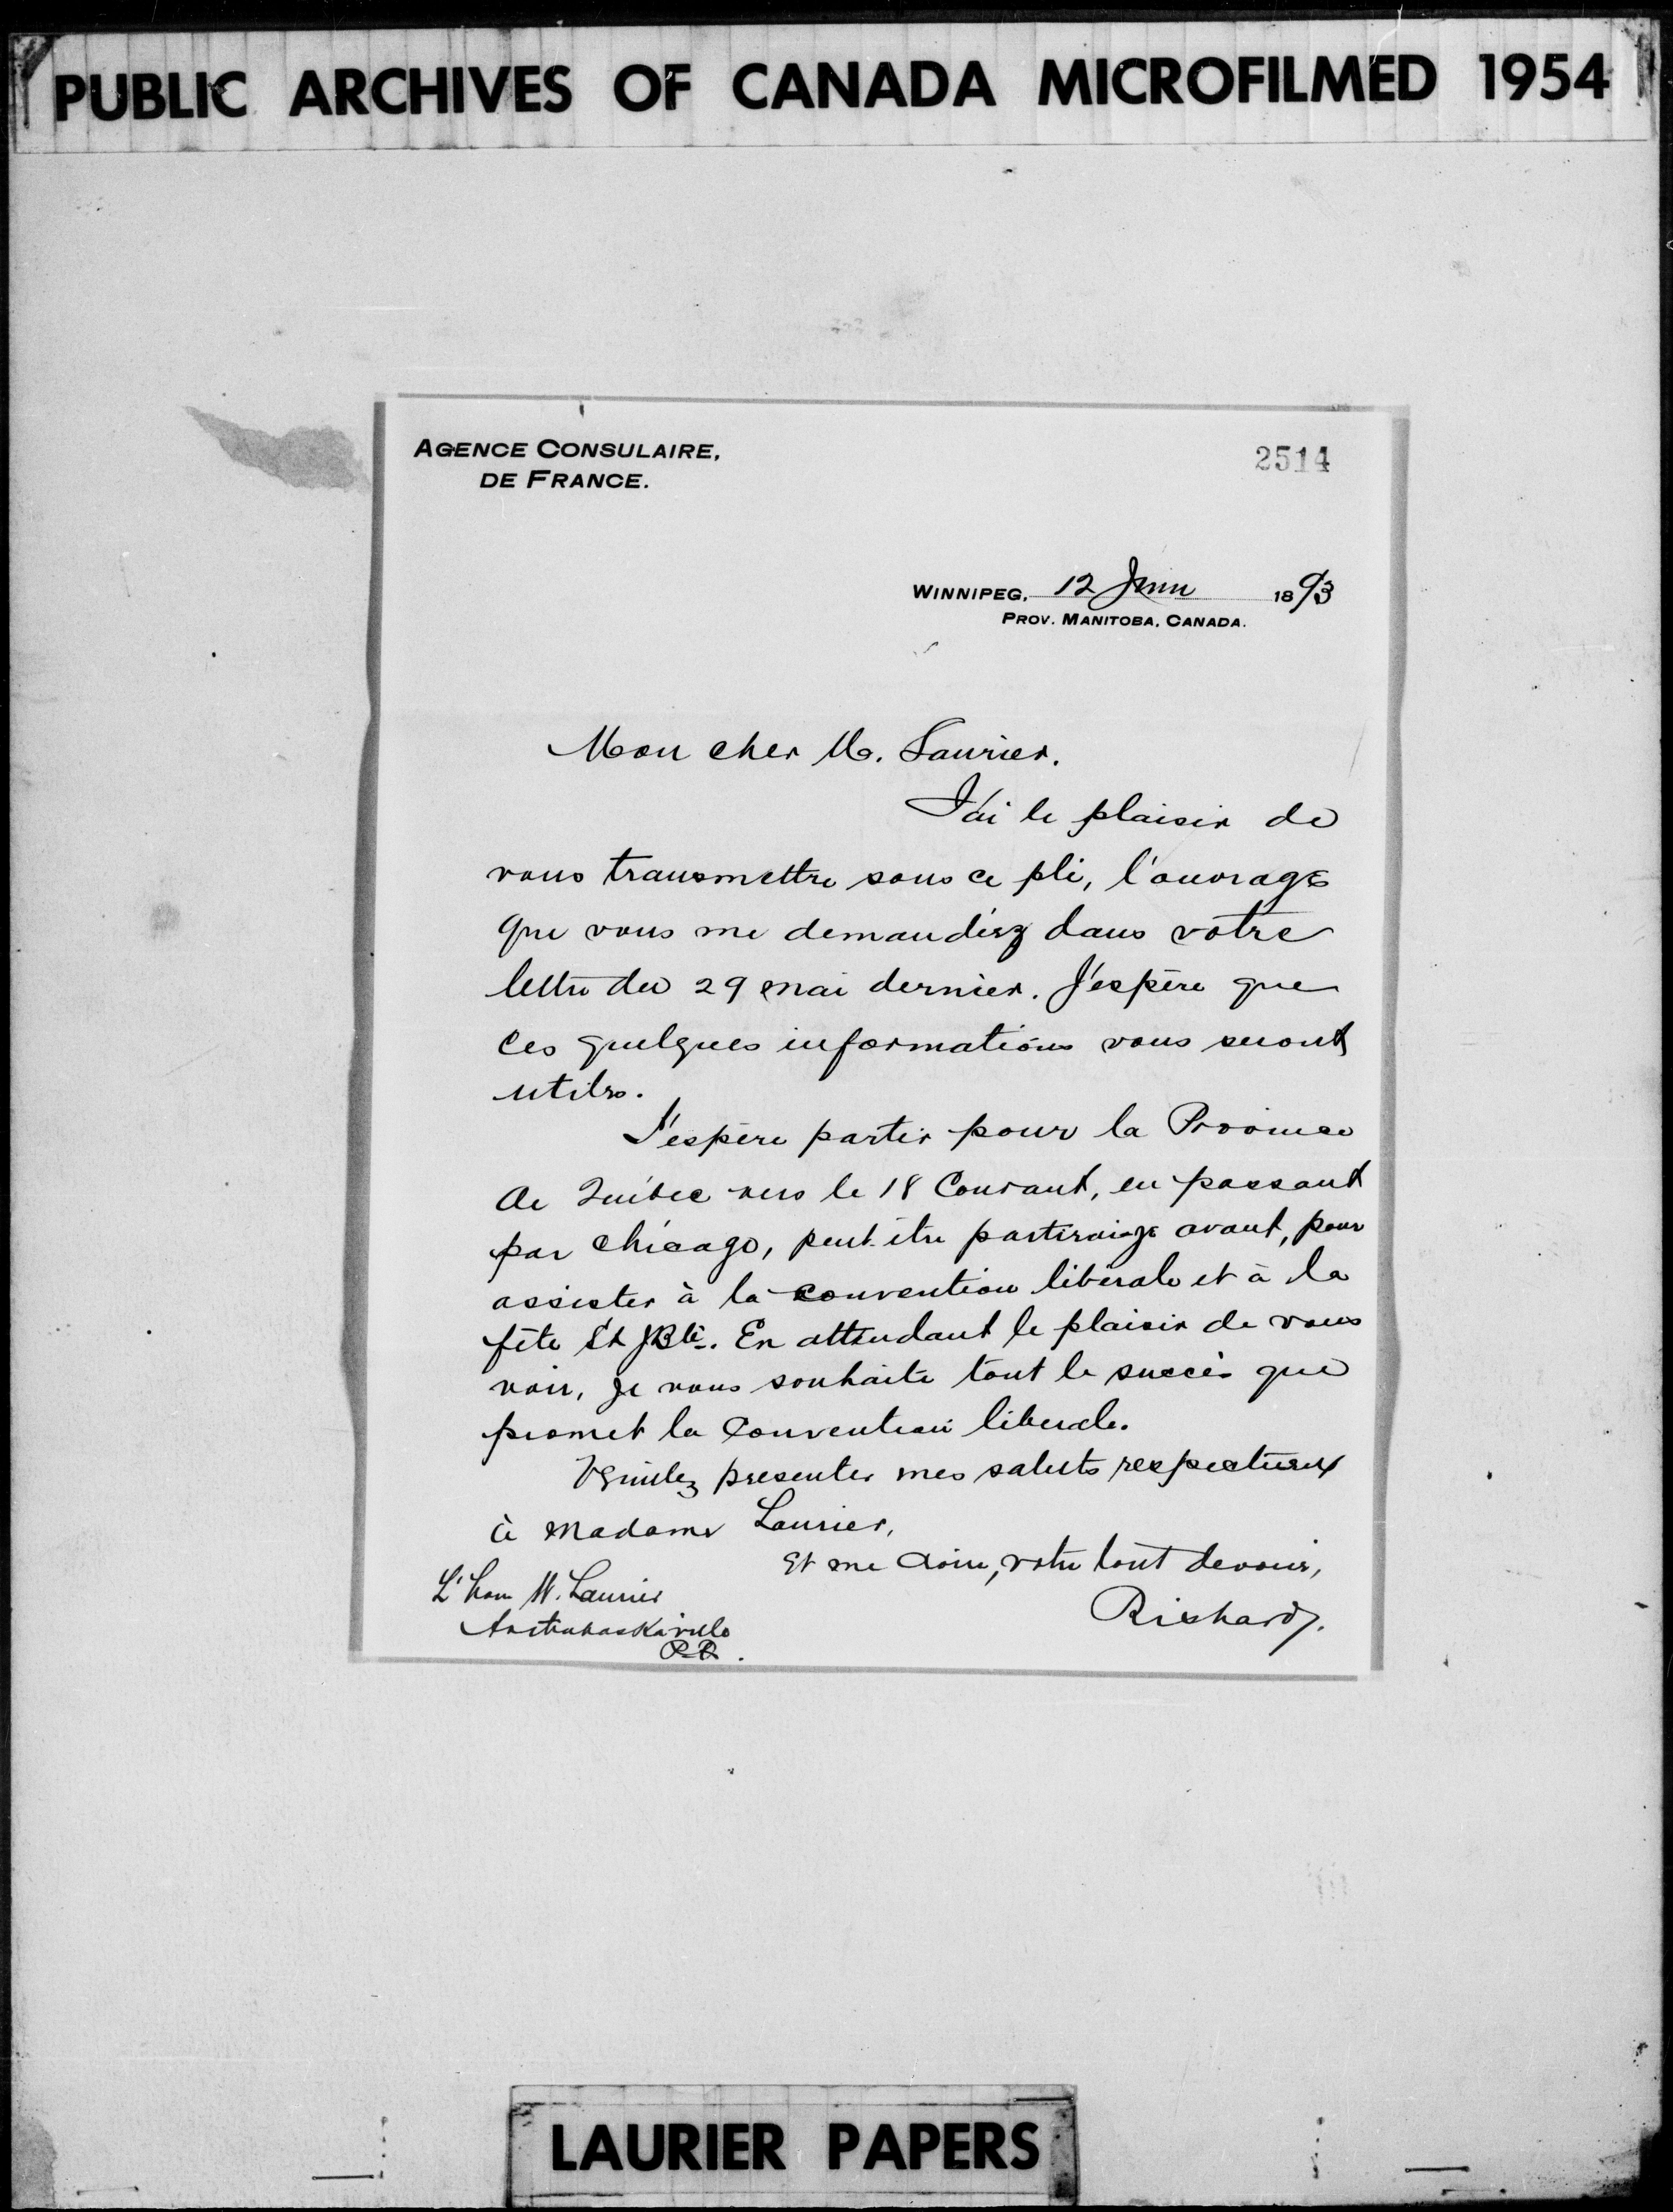 PUBLIC ARCHIVES OF CANADA MICROFILMED 1954
AGENCE CONSULAIRE,
DE FRANCE.
2514
WINNIPEG, 12 Juin 1893
PROV. MANITOBA, CANADA.
Mon cher M. Laurier.
J'ai le plaisir de
vous transmettre sous ce pli, l'ouvrage
que vous me demandiez dans votre
lettre du 29 mai dernier. J'espère que
ces quelques informations vous seront
utiles.
J'espère partir pour la Province
de Québec vers le 18 Courant, en passant
par Chicago, peut-être partirai-je avant, pour
assister à la convention libérale et à la
fête St JBte. En attendant le plaisir de vous
voir, je vous souhaite tout le succès que
promet la Convention libérale.
Veuillez presenter mes saluts respectueux
à Madame Laurier,
Et me croire, votre tout devoué,
Richard.
L'hon W. Laurier
Arthabaskaville
P.Q.
LAURIER PAPERS